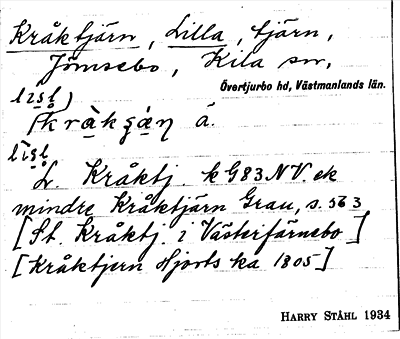 Kråktjärn, Lilla, tjärn,
Jömsebo, Kila sn,
Övertjurbo hd, Västmanlands län.
lısl)
kråkɕän å.
lìsl
L. Kråktj. k G83 NV. ek
mindre Kråktjärn Grau, s. 563
[St. Kråktj. i Västerfärnebo]
[Kråktjern Hjorts ka 1805]
HARRY STÅHL 1934